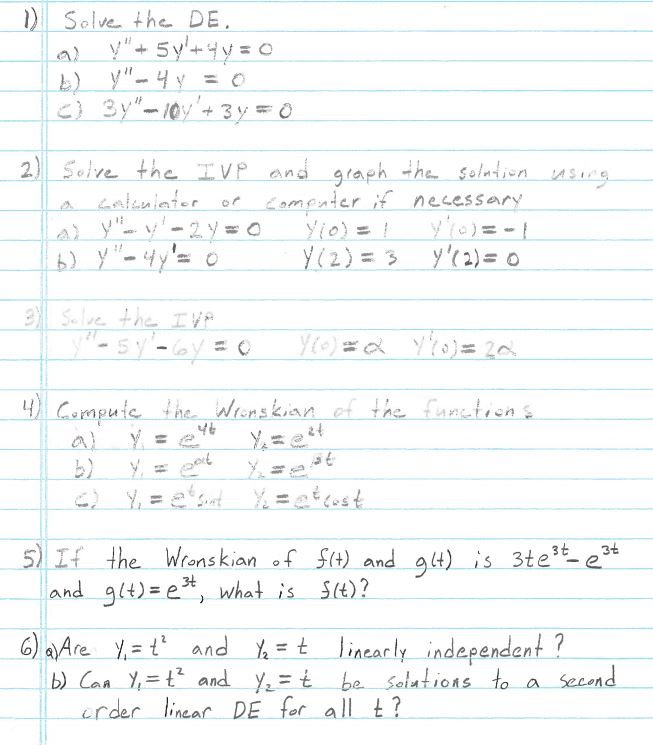 1) Solve the DE.
a) y" + 5y' + 4y = 0
b) y" - 4y = 0
c) 3y" - 10y' + 3y = 0
2) Solve the IVP and graph the solution using
a calculator or computer if necessary
a) y" - y' - 2y = 0 y(0) = 1 y'(0) = -1
b) y" - 4y' = 0 y(2) = 3 y'(2) = 0
3) Solve the IVP
y" - 5y' - 6y = 0 y(0) = α y'(0) = 2α
4) Compute the Wronskian of the functions
a) y₁ = e^4t y₂ = e^2t
b) y₁ = e^αt y₂ = e^βt
c) y₁ = e^t sint y₂ = e^t cost
5) If the Wronskian of f(t) and g(t) is 3te^3t - e^3t
and g(t) = e^3t, what is f(t)?
6) a) Are y₁ = t² and y₂ = t linearly independent?
b) Can y₁ = t² and y₂ = t be solutions to a second
order linear DE for all t?